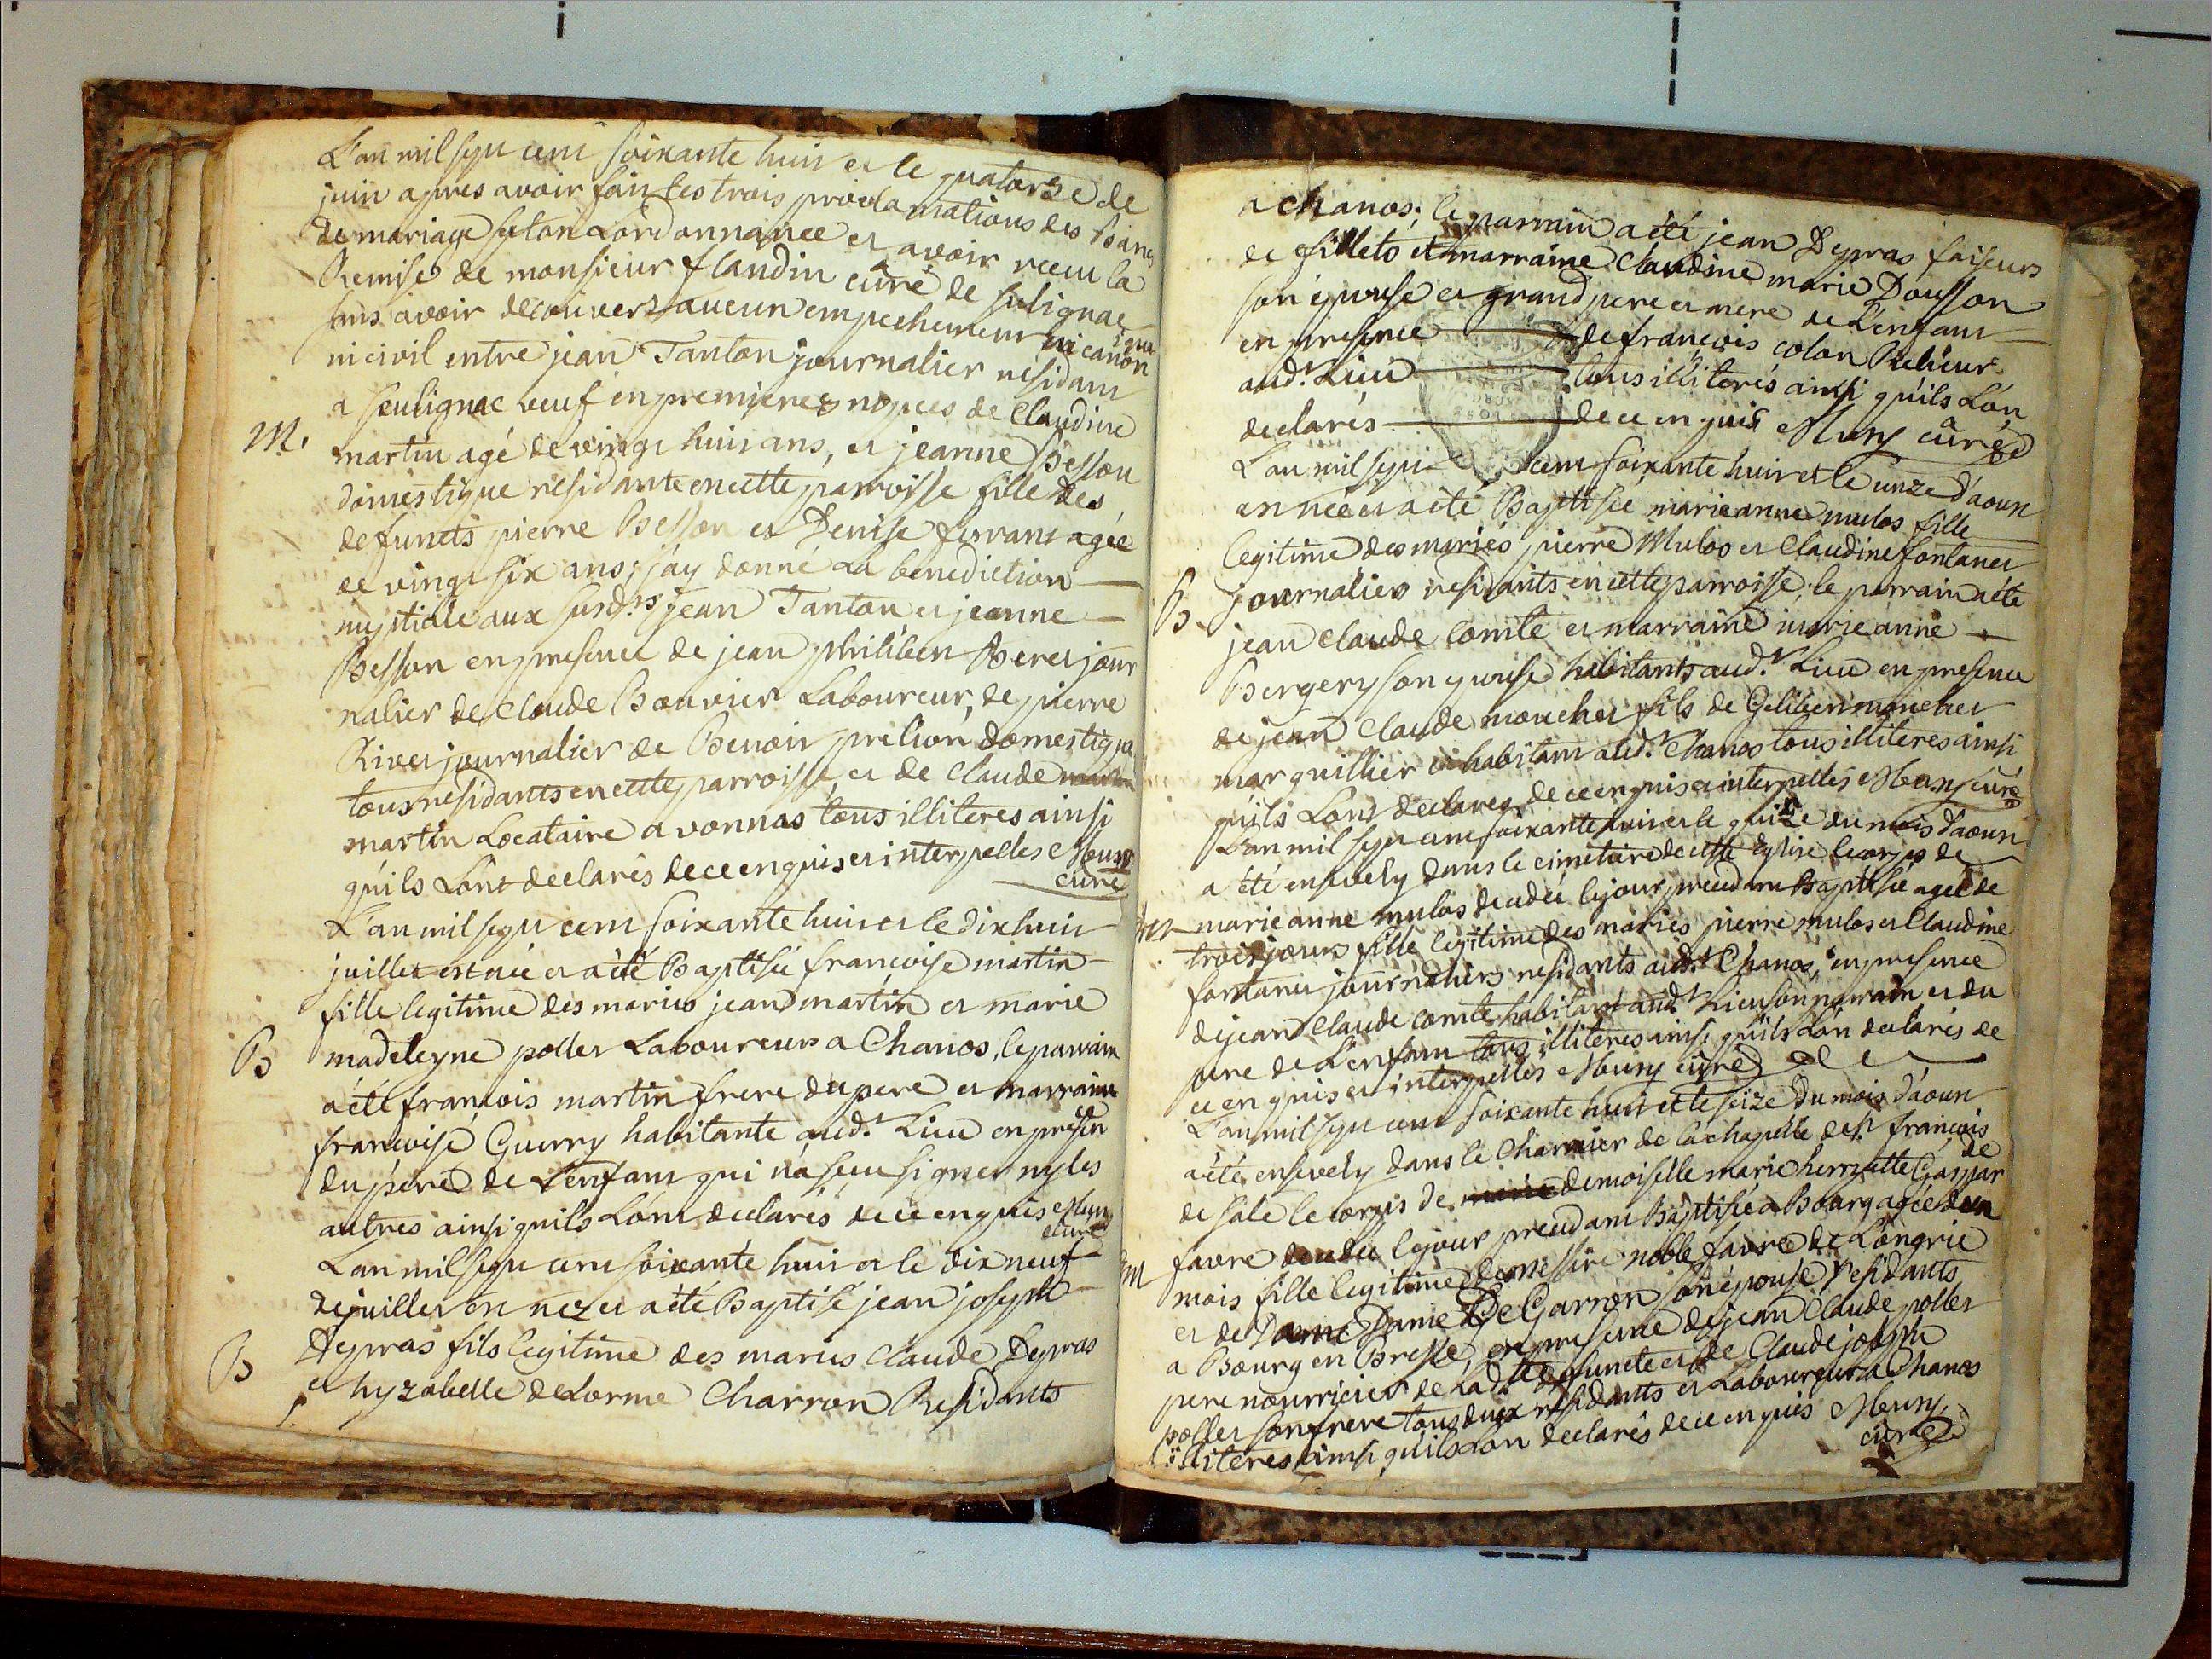 L'an mil sept cent soixante huit et le quatorze de
juin apres avoir fait les trois proclamations des Bancs
de mariage selon Lordonnance et avoir receu la
Remise de monsieur flandin curé de sulignac
sans avoir decouvert aucun empechement ni canon
ni civil entre jean Tanton journalier residant
a seulignac veuf en premieres nopces de Claudine
M. martin agé de vingt huit ans, et jeanne Besson
domestique residante en cette parroisse fille des
defuncts pierre Besson et Denise ferrant agée
de vingt six ans; j'ay donné La benediction
nuptiale aux susd.ts jean Tanton et jeanne
Besson en presence de jean philibert Beret jour
nalier de Claude Bouvier Laboureur, de pierre
Rivet journalier de Benoit prelion domestique
tous residants en cette parroisse, et de Claude
martin Locataire a vonnas tous illiteres ainsi
qu'ils L'ont declarés de ce enquis et interpelles Mury
curé
L'an mil sept cent soixante huit et le dix huit
juillet est née et a été Baptisée francoise martin
fille legitime des mariés jean martin et marie
B madeleyne pollet Laboureurs a Chanos, le parrain
a été francois martin frere du pere et marraine
francoise Guerry habitante aud.t Lieu en presen
du pere de L'enfant qui n'a sceu signer ny les
autres ainsi quils L'ont declarés de ce enquis Mury
curé
L'an mil sept cent soixante huit et le dix neuf
de juillet est nez et a été Baptisé jean joseph
B Depras fils legitime des mariés Claude Depras
et hyzabelle deLorme Charron Residants
a chanos; le parrain a été jean Depras faiseurs
de fillets et marraine Claudine marie Dousson
son epouse et grand pere et mere de L'enfant
en presence de francois colon Relieur
aud.t Lieu tous illiterés ainsi qu'ils L'on
declarés de ce enquis Mury curé
L'an mil sept cent soixante huit et le unze d'aoust
est née et a été Baptisée marieanne mulos fille
legitime des mariés pierre Mulos et Claudine fontanet
B. journaliers residants en cette parroisse; le parrain a été
jean claude Comte et marraine marie anne
Bergery son epouse habitants aud.t Lieu en presence
de jean Claude moucher fils de Gelibert moucher
marguillier et habitant aud.t Chanos tous illiteres ainsi
qu'ils L'ont declarés de ce enquis et interpellés Mury curé
L'an mil sept cent soixante huit et le quinze du mois d'aoust
a été ensevely dans le cimetiere de cette Eglise le corps de
marieanne mulos decedée le jour precedant Baptisée agée de
trois jours fille legitime des mariés pierre mulos et Claudine
fontanet journaliers residants aud.t Chanos, en presence
de jean Claude comte habitant aud.t Lieu son parrain et du
pere de L'enfant tous illiteres ainsi qu'ils L'on declarés de
ce enquis et interpelles Mury curé
L'an mil sept cent soixante huit et le seize du mois d'aoust
a été ensevely dans le Charnier de la chapelle de st francois
de
de sale le corps de demoiselle marie henriette Gaspar
favre decedée le jour precedant Baptisée a Bourg agée d'un
m mois fille legitime de messire noble favre de Longrie
et de Dame De Garron son épouse residants
a Bourg en Bresse, en presence de jean Claude pollet
pere nourricier de Lad.te defuncte et de Claude joseph
pollet son frere tous deux residants et Laboureurs a Chanos
illiteres ainsi qu'ils L'on declarés de ce enquis Mury,
curé